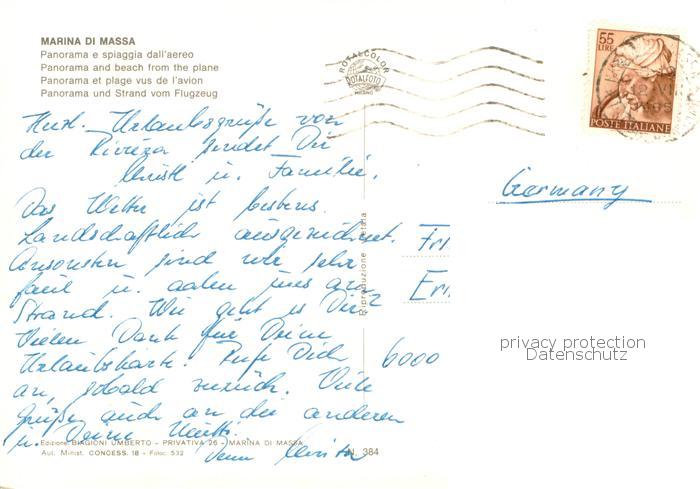 MARINA DI MASSA
Panorama e spiaggia dall'aereo
Panorama and beach from the plane
Panorama et plage vus de l'avion
Panorama und Strand vom Flugzeug
ROTALCOLOR
ROTALFOTO
MILANO
55
LIRE
POSTE ITALIANE
Herzl. Urlaubsgrüße von
der Riviera sendet Dir
Christl u. Familie.
Das Wetter ist bestens.
Landschaftlich ausgezeichnet.
Ansonsten sind wir sehr
faul u. aalen uns am
Strand. Wie geht es Dir?
Vielen Dank für Deine
Urlaubskarte. Rufe Dich
an, sobald zurück. Viele
Grüße auch an die anderen
u. Deine Mutti.
Germany
Fri
Eri
6000
privacy protection
Datenschutz
Riproduzione vietata
Edizione BIAGIONI UMBERTO - PRIVATIVA 26 - MARINA DI MASSA
Aut. Minist. CONCESS. 18 - Foloc. 532
N. 384